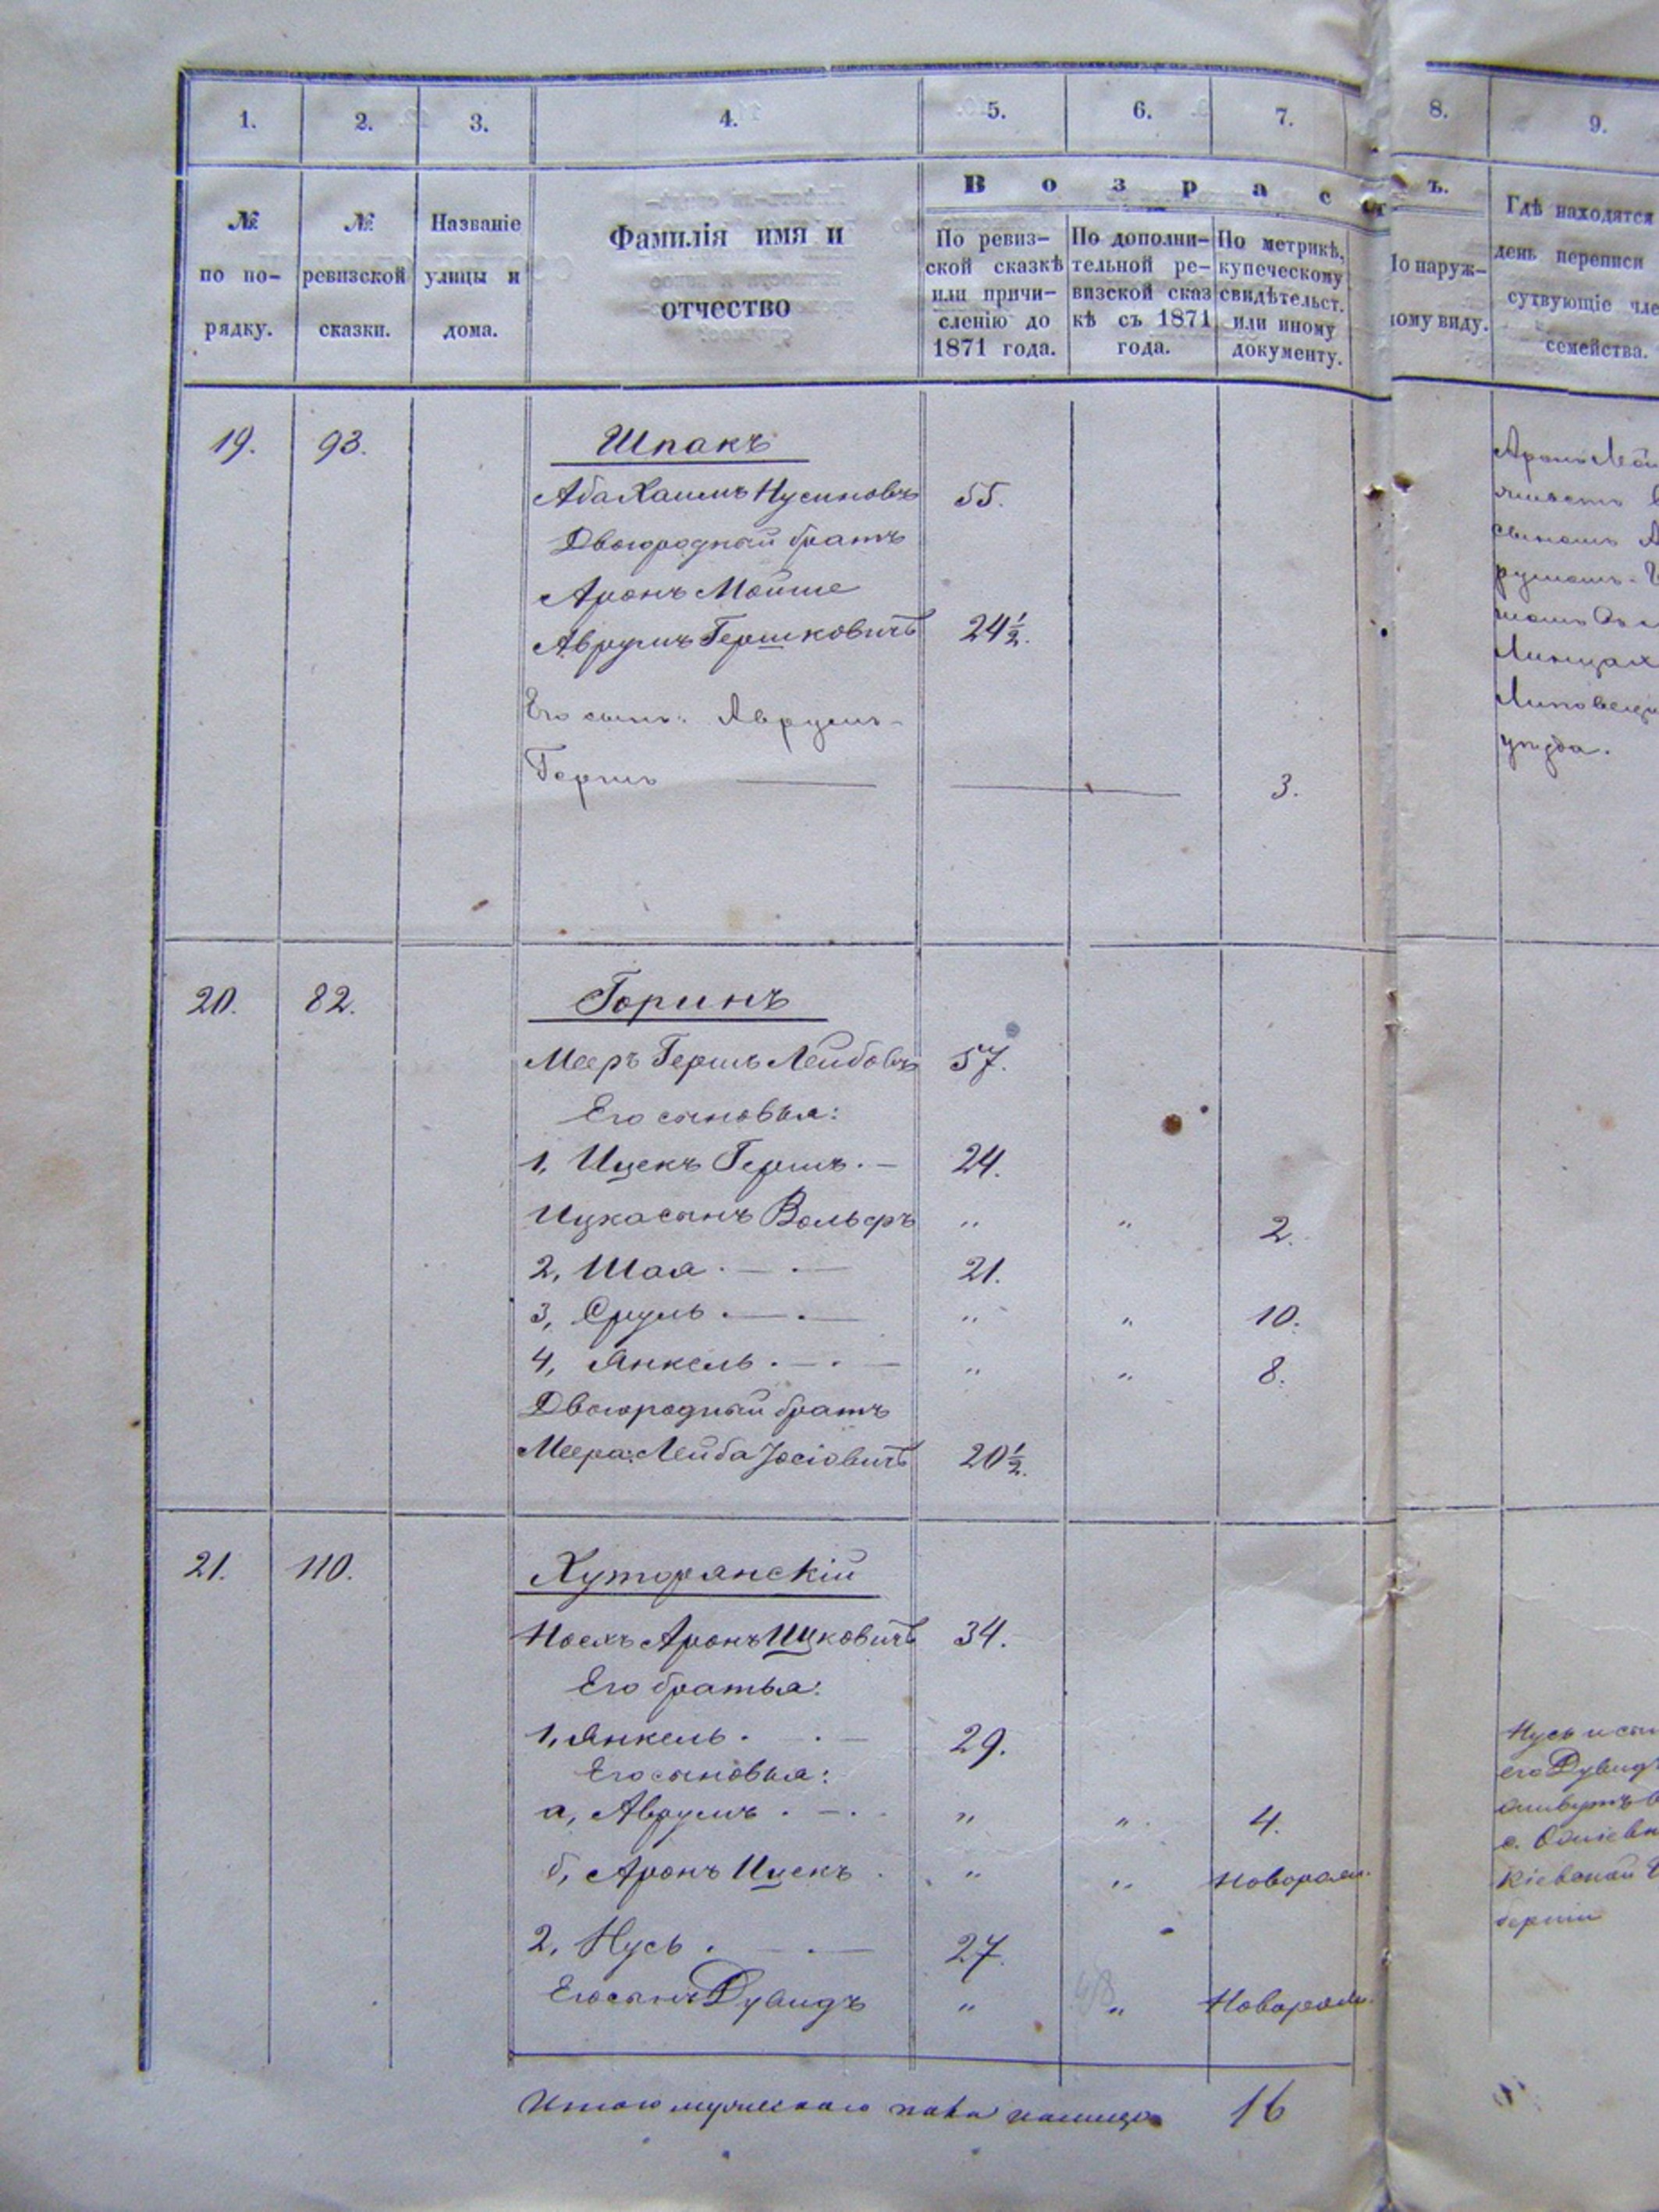 1. 2. 3. 4. 5. 6. 7. 8. 9.
№ по по-рядку.
№ ревизской сказки.
Названіе улицы и дома.
Фамилія имя и отчество
В о з р а с т ъ.
По ревиз-
ской сказкѣ
или причи-
сленію до
1871 года.
По дополни-
тельной ре-
визской сказ
кѣ съ 1871
года.
По метрикѣ,
купеческому
свидѣтельст.
или иному
документу.
По наруж-
ному виду.
Гдѣ находятся
день переписи
сутвующіе чле
семейства.
19. 93. Шпакъ
Аба Хаимъ Нусиновъ 55.
Двоюродный братъ
Аронъ Мойше
Аврумъ Гершковичъ 24½.
Его сынъ: Аврумъ-
Гершъ 3.
Липовец
уѣзда.
20. 82. Горинъ
Мееръ Гершъ Лейбовъ 57.
Его сыновья:
1, Ицекъ Гершъ. — 24.
Ицка сынъ Вольфъ " " 2.
2, Шая . — . — 21.
3, Сруль . — . — " " 10.
4, Янкель . — . — " " 8.
Двоюродный братъ
Меера: Лейба Іосіовичъ 20½.
21. 110. Хуторянскій
Аронъ Ицковичъ 34.
Его братья:
1, Янкель . . — 29.
Его сыновья:
а, Аврумъ . — . " " 4.
б, Аронъ Ицекъ . " " Новорожд.
2, Нусь . — . — 27.
Его сынъ Дувидъ " " Новорожд.
Нусь и сын
его Дувидъ
живутъ в
с.
Кіевской Гу
берніи
Итого мужескаго пола налицо 16